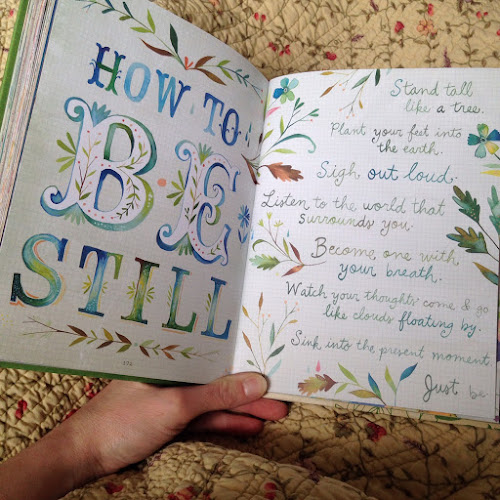 HOW TO
BE
STILL
Stand tall
like a tree.
Plant your feet into
the earth.
Sigh out loud.
Listen to the world that
surrounds you.
Become one with
your breath.
Watch your thoughts come & go
like clouds floating by.
Sink into the present moment
Just be